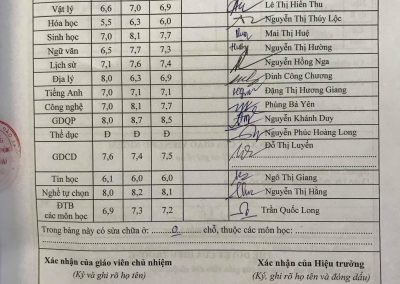 Vật lý 6,6 7,0 6,9 Lê Thị Hiền Thu
Hóa học 5,5 6,3 6,0 Nguyễn Thị Thúy Lộc
Sinh học 7,0 8,1 7,7 Mai Thị Huệ
Ngữ văn 6,5 7,7 7,3 Nguyễn Thị Hường
Lịch sử 7,1 7,6 7,4 Nguyễn Hồng Nga
Địa lý 8,0 6,3 6,9 Đinh Công Chương
Tiếng Anh 7,0 7,1 7,1 Đặng Thị Hương Giang
Công nghệ 7,0 8,1 7,7 Phùng Bá Yên
GDQP 8,0 8,7 8,5 Nguyễn Khánh Duy
Thể dục Đ Đ Đ Nguyễn Phúc Hoàng Long
GDCD 7,6 7,4 7,5 Đỗ Thị Luyến
Tin học 6,1 6,0 6,0 Ngô Thị Giang
Nghề tự chọn 8,0 8,2 8,1 Nguyễn Thị Hằng
ĐTB
các môn học 6,9 7,3 7,2 Trần Quốc Long
Trong bảng này có sửa chữa ở: 0 chỗ, thuộc các môn học:
Xác nhận của giáo viên chủ nhiệm Xác nhận của Hiệu trưởng
(Ký và ghi rõ họ tên) (Ký, ghi rõ họ tên và đóng dấu)